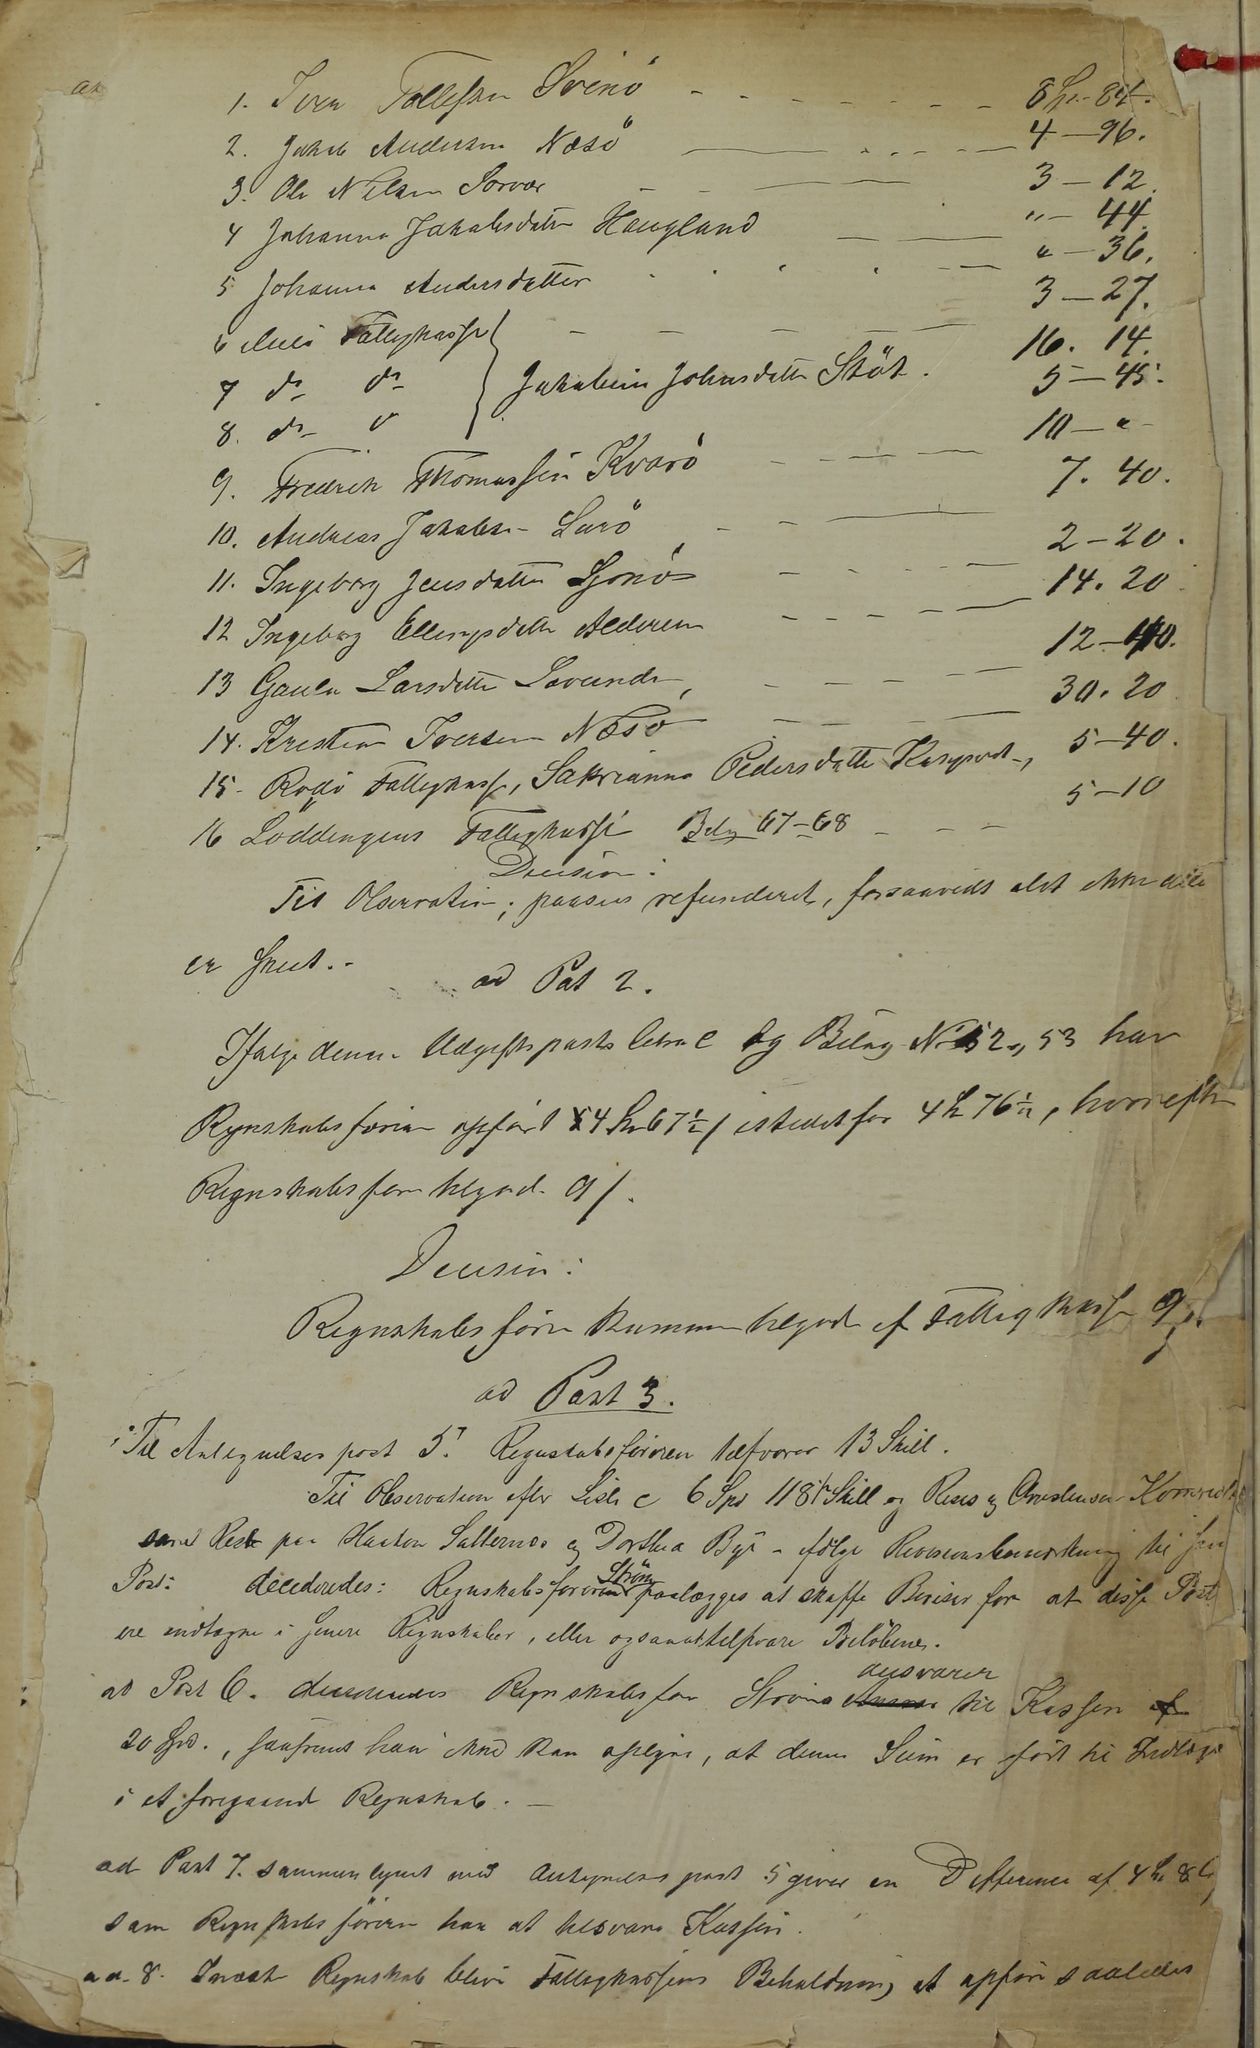 1. Iver Tollefsen Svinö - - - - - - - 8 Sp. - 84.
2. Jakob Andersen Næsö - - - 4 - 96.
3. Ole Nilsen Sorvær - - - 3 - 12.
4 Johanna Jakobsdatter Haugland - - " - 44.
5 Johanna Andersdatter - - - " - 36.
6 Fattigkasse - - - - 3 - 27.
7 do do Jakobine Johnsdatter Stöt. 16. 14.
8. do do 5 - 45.
10 - " -
9. Fredrik Thomassen Kvarö - - - 7. 40.
10. Andreas Jakobsen Lurö - - - 2 - 20.
11. Ingeborg Jensdatter Sjonö - - - 14. 20
12 Ingeborg Ellingsdatter Alderen - - - 12 - 40.
13 Larsdatter Lovunden, - - - 30. 20
14. Kristian Iversen Næsö - - - 5 - 40.
15. Rödö Fattigkasse, Pedersdatter
16 Löddingens Fattigkasse Bilag 67-68 - - - 5 - 10
Decision:
Til Observation; paasees refunderet, forsaavidt det ikke alle
er skeet. -
ad Post 2.
Ifølge denne Udgiftsposts litra C og Bilag No 52, 53 har
Regnskabsføreren opført 4 Sp 67½ / istedetfor 4 Sp 76½, hvorefter
Regnskabsføreren tilgode 9 /.
Decision:
Regnskabsføreren kommer tilgode af Fattigkassen 9 /.
ad Post 3.
Til Antegnelses post 5. Regnskabsføreren tilsvarer 13 Skill.
Til Observation efter Liste c 6 Spd 118½ Skill og
samt Rest paa Harton Salternes og Dorthea - ifølge Revisionsbemærkning til
Post: decideredes: Regnskabsføreren Ström paalægges at skaffe Beviser for at disse Poster
ere indtagne i senere Regnskaber, eller ogsaa at tilsvare Beløbene.
ad Post 6. decideredes Regnskabsfør. Ström ansvarer til Kassen
20 Spd., saafremt han ikke kan oplyse, at denne Sum er ført til Indtægt
i et foregaaende Regnskab. -
ad Post 7. sammenlignet med Antegnelses post 5 giver en Difference af 4 Sp 86
som Regnskabsføreren har at tilsvare Kassen.
ad. 8. I næste Regnskab bliver Fattigkassens Beholdning at opføre saaledes